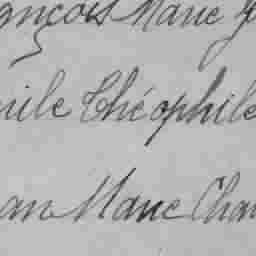 ançois Marie
mile Théophile
ean Marie Char